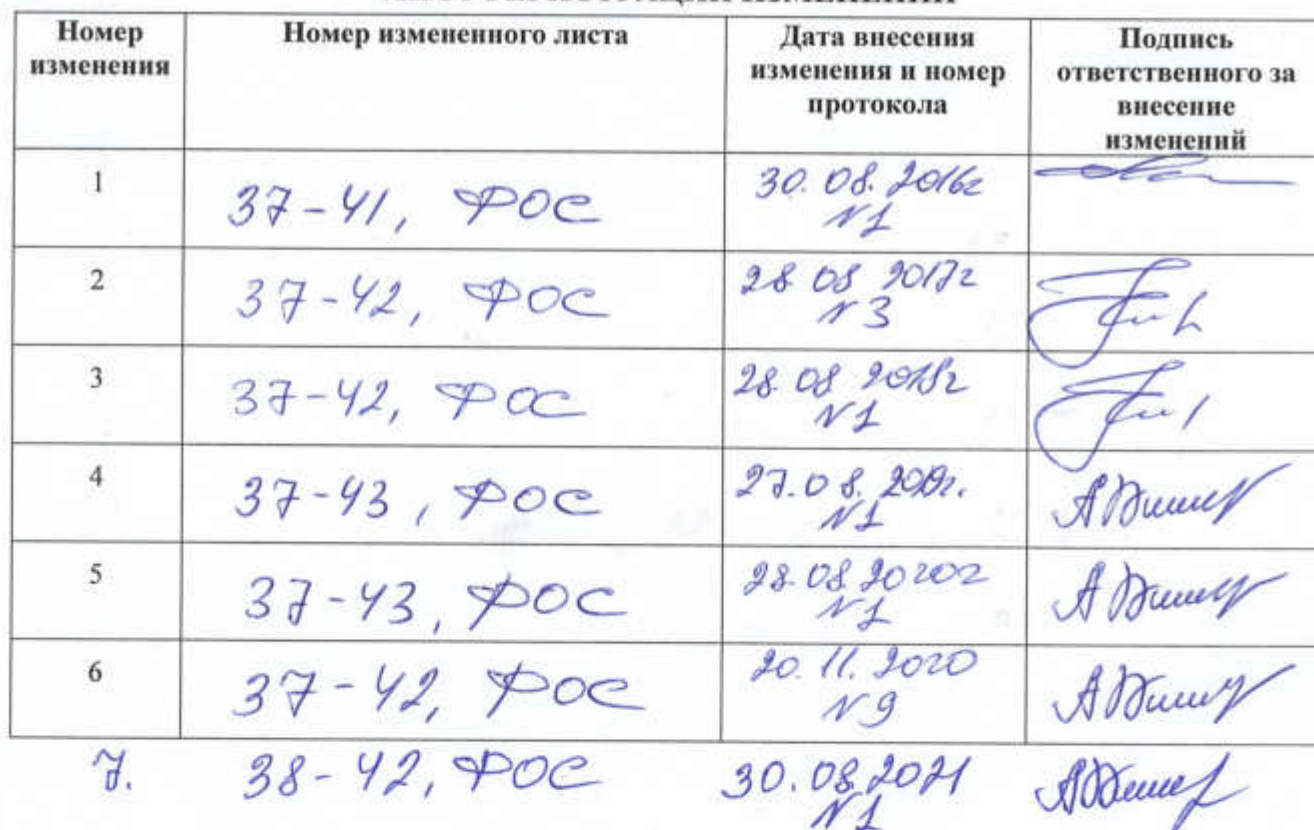 Номер изменения
Номер измененного листа
Дата внесения изменения и номер протокола
Подпись ответственного за внесение изменений
1
37-41, ФОС
30.08.2016г
N1
2
37-42, ФОС
28 08 2017г
N3
3
37-42, ФОС
28.08 2018г
N1
4
37-43, ФОС
27.08.2019г.
N1
5
37-43, ФОС
28.08.2020г
N1
6
37-42, ФОС
20.11.2020
N9
7.
38-42, ФОС
30.08.2021
N1